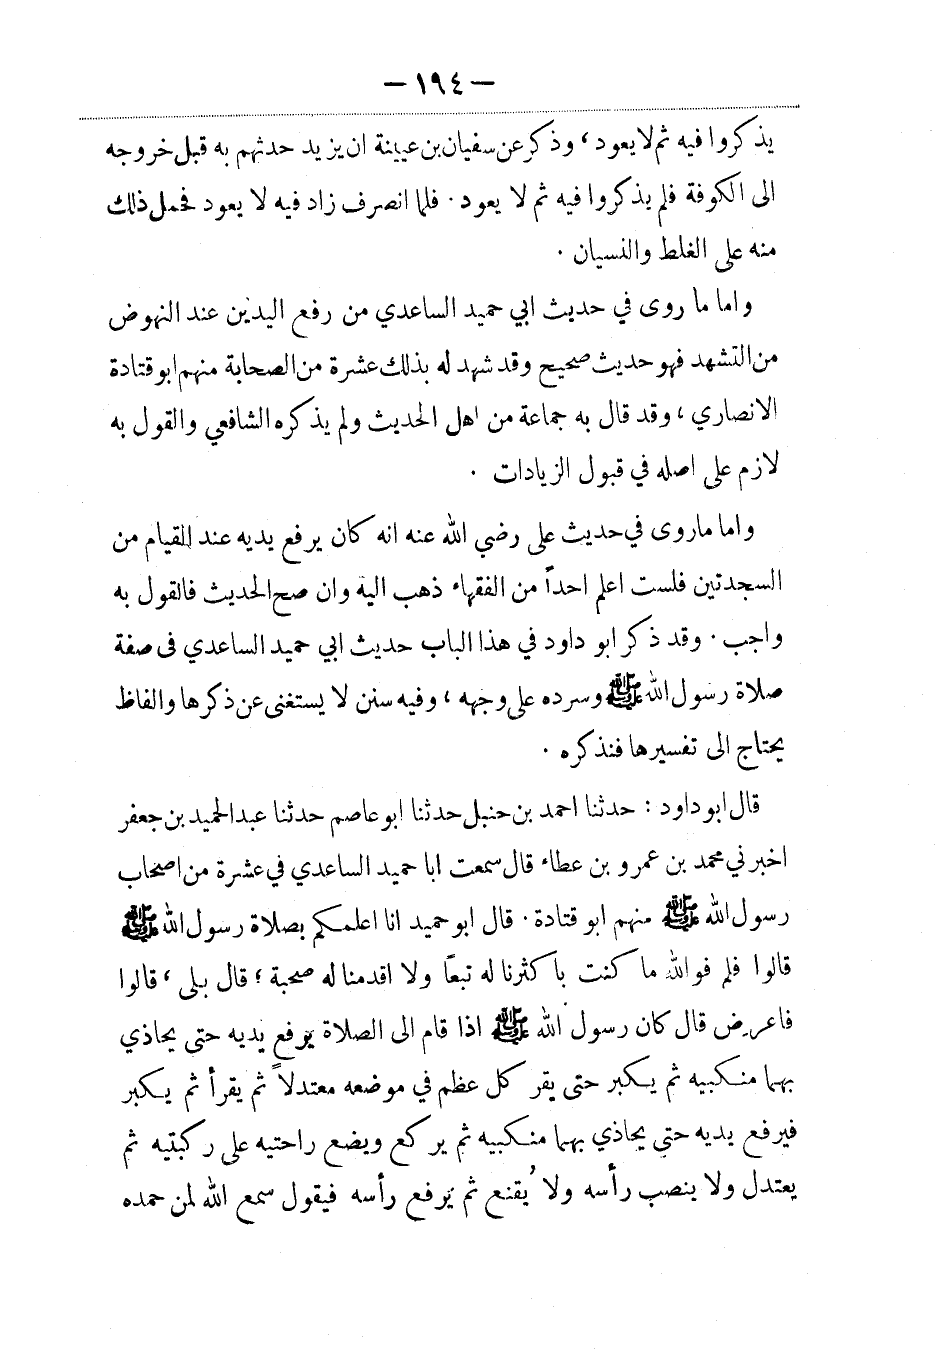 — ١٩٤ —
يذكروا فيه ثم لا يعود ، وذكر عن سفيان بن عيينة ان يزيد حدثهم به قبل خروجه
الى الكوفة فلم يذكروا فيه ثم لا يعود . فلما انصرف زاد فيه لا يعود فحمل ذلك
منه على الغلط والنسيان .
واما ما روى في حديث ابي حميد الساعدي من رفع اليدين عند النهوض
من التشهد فهو حديث صحيح وقد شهد له بذلك عشرة من الصحابة منهم ابو قتادة
الانصاري ، وقد قال به جماعة من اهل الحديث ولم يذكره الشافعي والقول به
لازم على اصله في قبول الزيادات .
واما ماروى في حديث على رضي الله عنه انه كان يرفع يديه عند القيام من
السجدتين فلست اعلم احداً من الفقهاء ذهب اليه وان صح الحديث فالقول به
واجب . وقد ذكر ابو داود في هذا الباب حديث ابي حميد الساعدي فى صفة
صلاة رسول الله ﷺ وسرده على وجهه ، وفيه سنن لا يستغنى عن ذكرها والفاظ
يحتاج الى تفسيرها فنذكره .
قال ابو داود : حدثنا احمد بن حنبل حدثنا ابو عاصم حدثنا عبد الحميد بن جعفر
اخبرني محمد بن عمرو بن عطاء قال سمعت ابا حميد الساعدي في عشرة من اصحاب
رسول الله ﷺ منهم ابو قتادة . قال ابو حميد انا اعلمكم بصلاة رسول الله ﷺ
قالوا فلم فوالله ما كنت باكثرنا له تبعاً ولا اقدمنا له صحبة ؛ قال بلى ، قالوا
فاعرض قال كان رسول الله ﷺ اذا قام الى الصلاة يرفع يديه حتى يحاذي
بهما منكبيه ثم يكبر حتى يقر كل عظم في موضعه معتدلاً ثم يقرأ ثم يكبر
فيرفع يديه حتى يحاذي بهما منكبيه ثم يركع ويضع راحتيه على ركبتيه ثم
يعتدل ولا ينصب رأسه ولا يُقنع ثم يرفع رأسه فيقول سمع الله لمن حمده